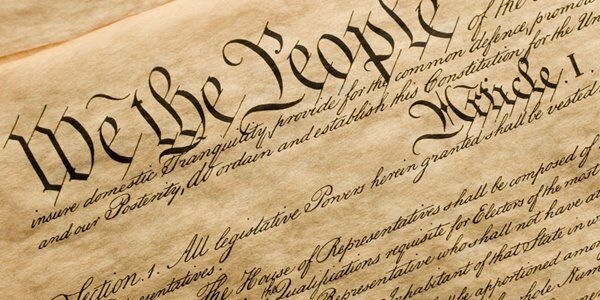 We the People of the
insure domestic Tranquility, provide for the common defence, promote
and our Posterity, do ordain and establish this Constitution for the Uni
Article. I.
Section. 1. All legislative Powers herein granted shall be vested
Representatives.
The House of Representatives shall be composed of
Qualifications requisite for Electors of the most
Representative who shall not have at
Inhabitant of that State in w
be apportioned among
whole Num